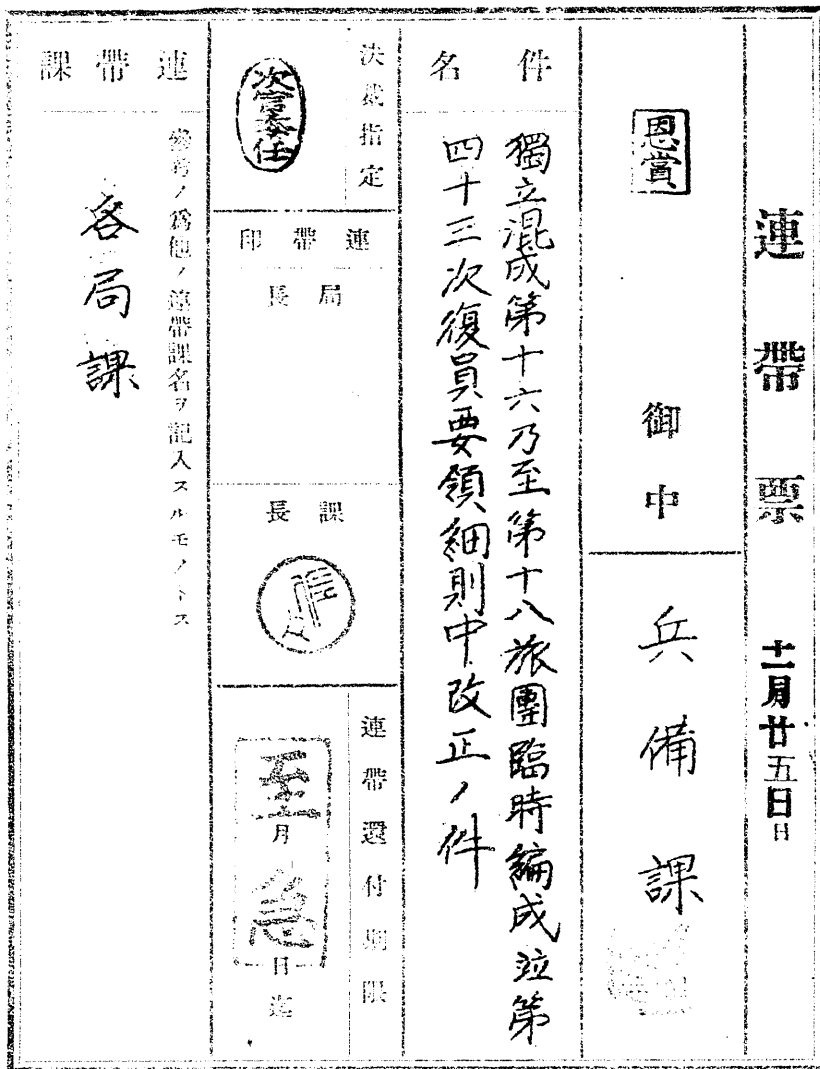 連帶票
十一月廿五日日
恩賞
御中
兵備課
件名
獨立混成第十六乃至第十八旅團臨時編成竝第
四十三次復員要領細則中改正ノ件
決裁指定
次官委任
連帶印
局長
課長
連帶還付期限
至急
月
日迄
連帶課
參考ノ爲他ノ連帶課名ヲ記入スルモノトス
各局課